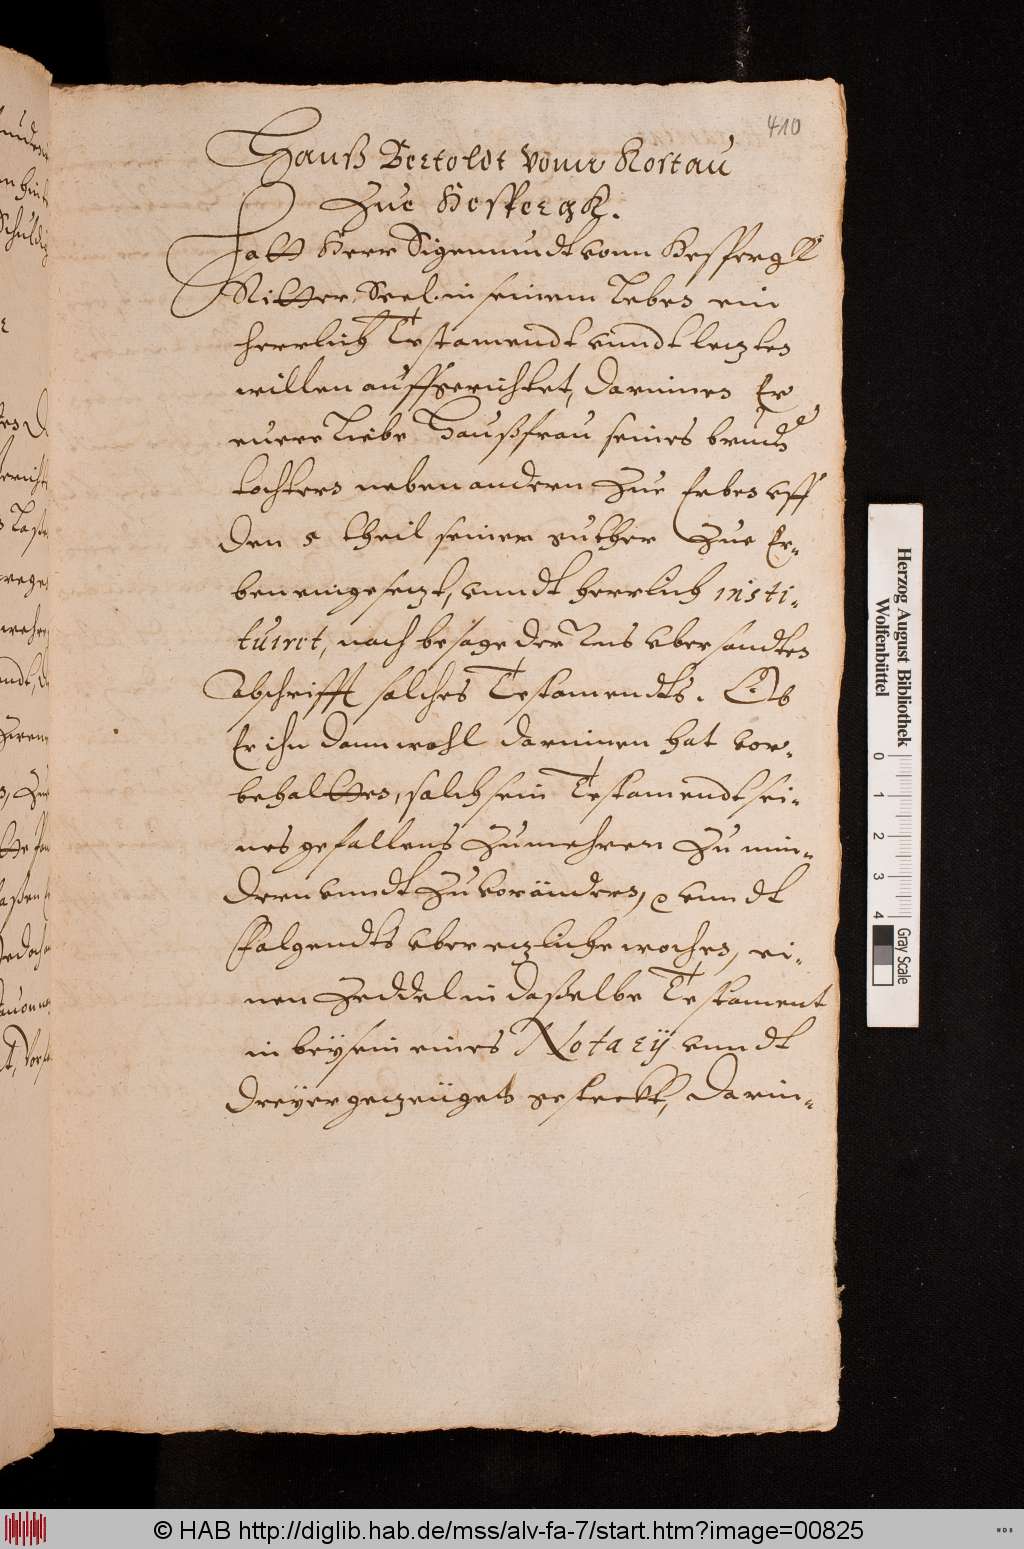 410
Hanß Bertoldt vonn Rostau
Zue Heßpergk.
Hatt Herr Sigemundt vonn Heßpergk
Ritter, Seel. in seinem leben ein
herrlich Testamendt vnndt leczten
willen auffgerichtet, darinnen Er
euere liebe Haußfrau seines bruders
tochtern neben andern zue Erben vff
den 5 theil seiner gutther zue Er-
ben eingeseczt, vnndt herrlich insti-
tuiret, nach besage der Uns vbersandten
Abschrifft solches Testamendts. Ob
Er ihn dann wohl darinnen hat vor-
behaltten, solch sein Testamendt sei-
nes gefallens zu mehren zu min-
dern vnndt zu vorändern, vnndt
folgendts vber eczliche wochen, ei-
nen Zeddel in daßelbe Testament
in beysein eines Notarÿ vnndt
dreyer gezeugen gesteckt, darin-
Herzog August Bibliothek
Wolfenbüttel
0 1 2 3 4
Gray Scale
© HAB http://diglib.hab.de/mss/alv-fa-7/start.htm?image=00825